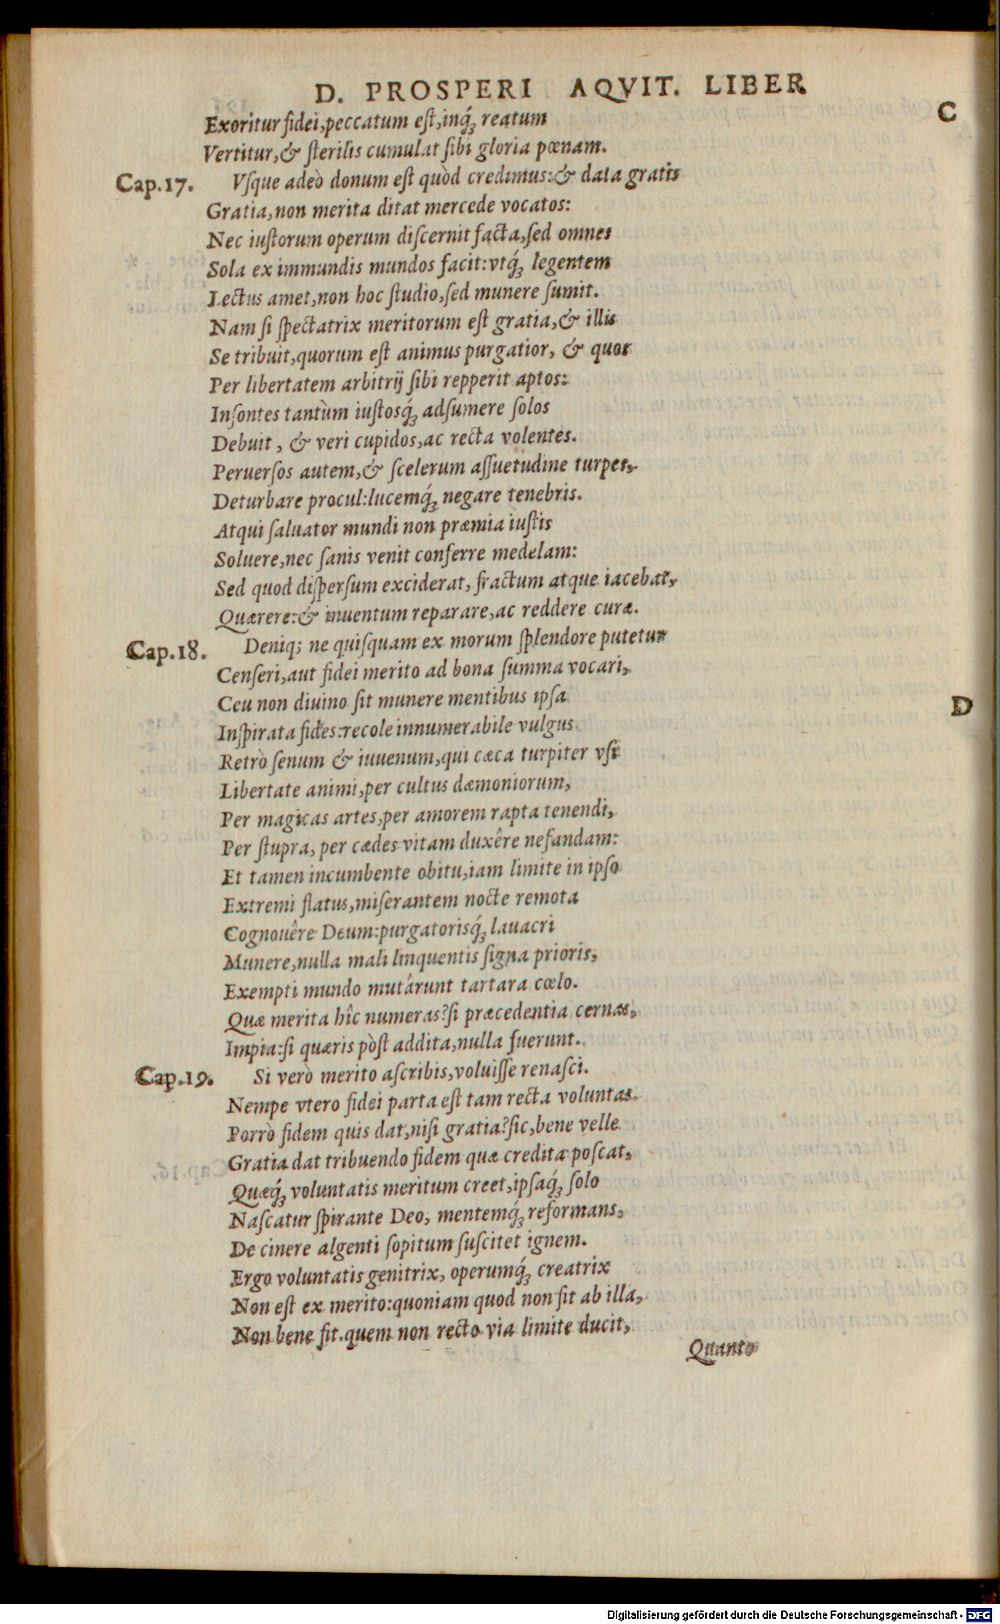 D. PROSPERI AQVIT. LIBER
C
Exoritur fidei,peccatum est,inq́ꝫ reatum
Vertitur,& sterilis cumulat sibi gloria pœnam.
Cap.17. Vsque adeò donum est quòd credimus:& data gratis
Gratia,non merita ditat mercede vocatos:
Nec iustorum operum discernit facta,sed omnes
Sola ex immundis mundos facit:vtq́ꝫ legentem
Lectus amet,non hoc studio,sed munere sumit.
Nam si spectatrix meritorum est gratia,& illis
Se tribuit,quorum est animus purgatior, & quos
Per libertatem arbitrij sibi repperit aptos:
Insontes tantùm iustosq́ꝫ adsumere solos
Debuit, & veri cupidos,ac recta volentes.
Peruersos autem,& scelerum assuetudine turpes,
Deturbare procul:lucemq́ꝫ negare tenebris.
Atqui saluator mundi non præmia iustis
Soluere,nec sanis venit conferre medelam:
Sed quod dispersum exciderat, fractum atque iacebat,
Quærere:& inuentum reparare,ac reddere curæ.
Cap.18. Deniq; ne quisquam ex morum splendore putetur
Censeri,aut fidei merito ad bona summa vocari,
Ceu non diuino sit munere mentibus ipsa
D
Inspirata fides:recole innumerabile vulgus
Retrò senum & iuuenum,qui cæca turpiter vsi
Libertate animi,per cultus dæmoniorum,
Per magicas artes,per amorem rapta tenendi,
Per stupra, per cædes vitam duxêre nefandam:
Et tamen incumbente obitu,iam limite in ipso
Extremi flatus,miserantem nocte remota
Cognouêre Deum:purgatorisq́ꝫ lauacri
Munere,nulla mali linquentis signa prioris,
Exempti mundo mutârunt tartara cœlo.
Quæ merita hîc numeras?si præcedentia cernas,
Impia:si quæris pòst addita,nulla fuerunt.
Cap.19. Si verò merito ascribis,voluisse renasci.
Nempe vtero fidei parta est tam recta voluntas.
Porrò fidem quis dat,nisi gratia?sic,bene velle
Gratia dat tribuendo fidem quæ credita poscat,
Quæq́ꝫ voluntatis meritum creet,ipsaq́ꝫ solo
Nascatur spirante Deo, mentemq́ꝫ reformans,
De cinere algenti sopitum suscitet ignem.
Ergo voluntatis genitrix, operumq́ꝫ creatrix
Non est ex merito:quoniam quod non fit ab illa,
Non bene fit.quem non recto via limite ducit,
Quanto
Digitalisierung gefördert durch die Deutsche Forschungsgemeinschaft - DFG